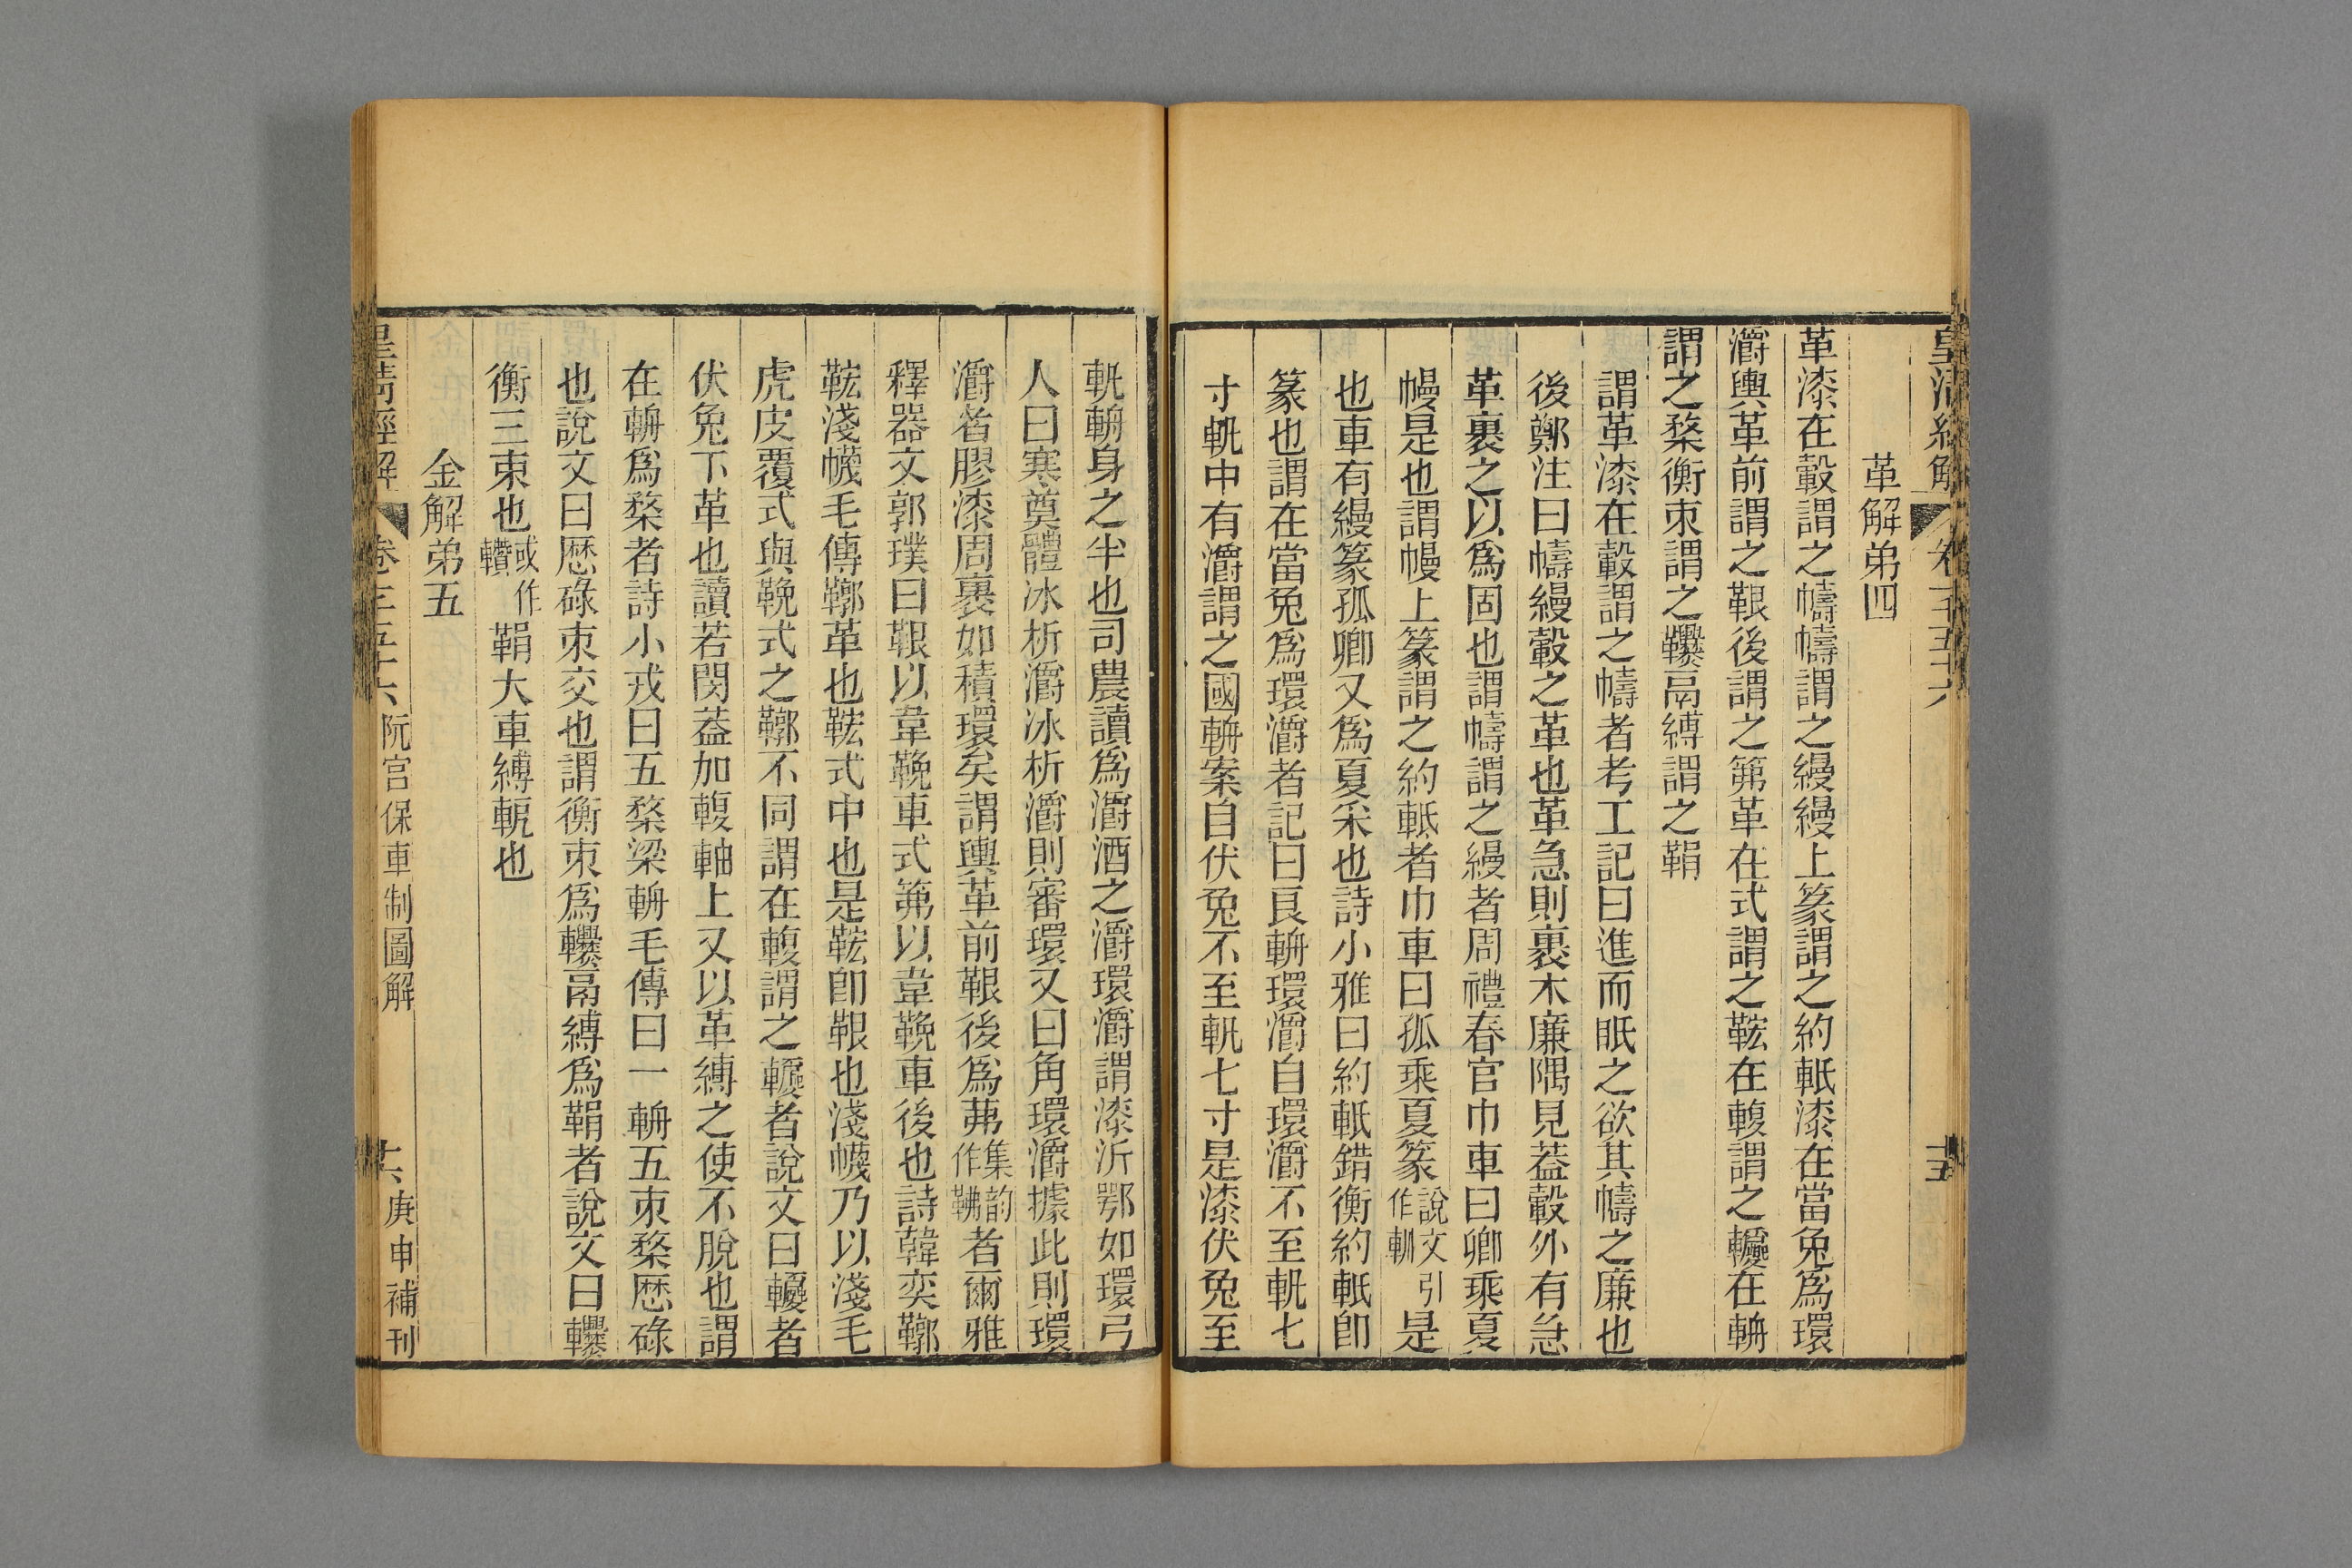 皇清經解 卷一千五十六 十五
革解弟四
革漆在轂謂之幬幬謂之縵縵上篆謂之約軝漆在當兔爲環
灂輿革前謂之鞎後謂之笰革在式謂之鞃在䡩謂之䡽在輈
謂之楘衡束謂之鞼鬲縛謂之鞙
謂革漆在轂謂之幬者考工記曰進而眂之欲其幬之廉也
後鄭注曰幬縵轂之革也革急則裹木廉隅見葢轂外有急
革裹之以爲固也謂幬謂之縵者周禮春官巾車曰卿乘夏
幔是也謂幔上篆謂之約軝者巾車曰孤乘夏篆說文引作䡅是
也車有縵篆孤卿又爲夏采也詩小雅曰約軝錯衡約軝卽
篆也謂在當兔爲環灂者記曰良輈環灂自環灂不至軓七
寸軓中有灂謂之國輈案自伏兔不至軓七寸是漆伏兔至
軓輈身之半也司農讀爲灂酒之灂環灂謂漆沂鄂如環弓
人曰寒奠體冰析灂冰析灂則審環又曰角環灂據此則環
灂者膠漆周裹如積環矣謂輿革前鞎後爲茀集韵作䩛者爾雅
釋器文郭璞曰鞎以韋鞔車式笰以韋鞔車後也詩韓奕鞹
鞃淺幭毛傳鞹革也鞃式中也是鞃卽鞎也淺幭乃以淺毛
虎皮覆式與鞔式之鞹不同謂在䡩謂之䡽者說文曰䡽者
伏兔下革也讀若閔葢加䡩軸上又以革縛之使不脫也謂
在輈爲楘者詩小戎曰五楘梁輈毛傳曰一輈五束楘歷碌
也說文曰歷碌束交也謂衡束爲䡽鬲縛爲鞙者說文曰
衡三束也或作鞼鞙大車縛軛也
金解弟五
皇清經解 卷一千五十六 阮宮保車制圖解 十六 庚申補刊